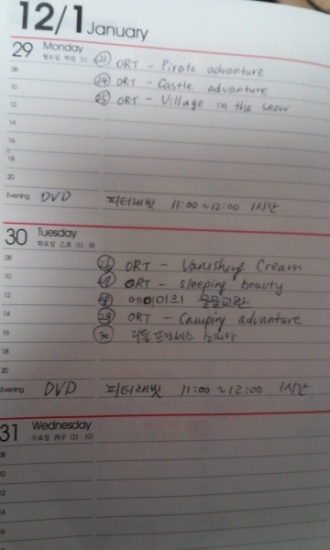 12/1 January
29 Monday
08 ㉓ ORT - Pirate advanture
10 ㉔ ORT - Castle advanture
12 ㉕ ORT - Village in the snow
14
16
18
20
Evening DVD 피터래빗 11:00~12:00 1시간
30 Tuesday
08 ORT - Vanishing Cream
10 ORT - sleeping beauty
12 에이미의 물물교환
14 ㉙ ORT - Camping advanture
16 ㉚ 리틀 프린세스 소피아
18
20
Evening DVD 피터래빗 11:00~12:00 1시간
31 Wednesday
08
10
12
14
16
18
20